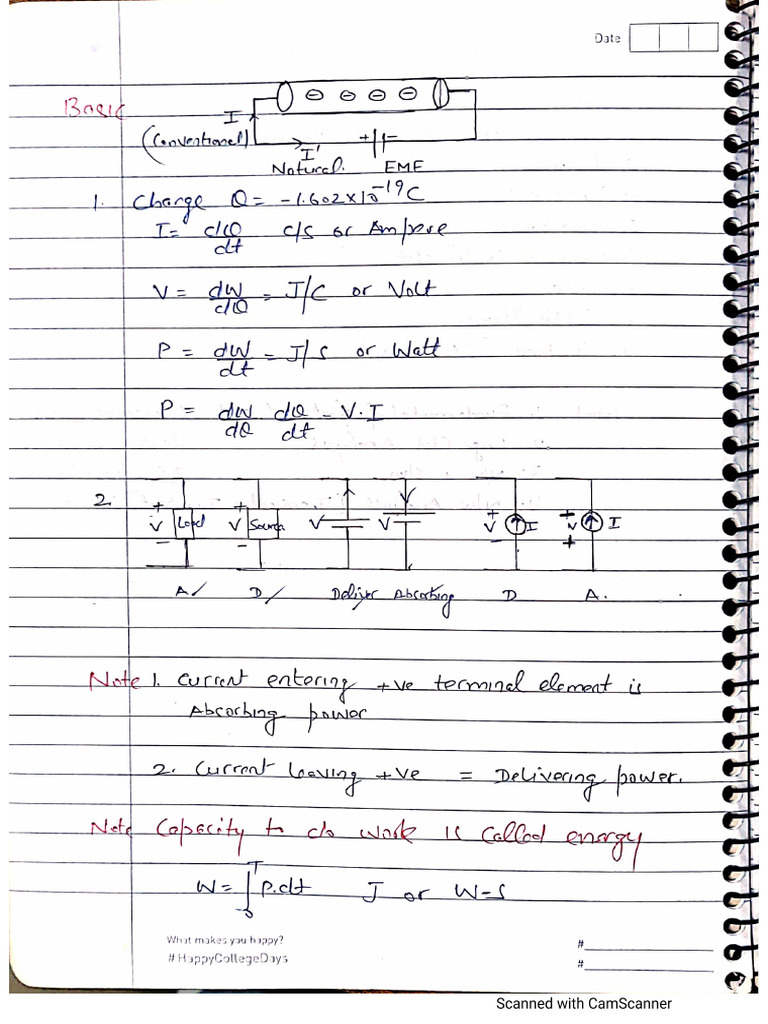 Date
Basic
I
(Conventional)
I'
+ -
Natural. EMF
1. Charge Q = -1.602×10^-19 C
I = dQ/dt C/S or Ampere
V = dW/dQ = J/C or Volt
P = dW/dt = J/S or Watt
P = dW/dQ dQ/dt = V·I
2.
+ V - Load
+ V - Source
V
V
+ V - I
+ V + I
A ✓ D ✓ Deliver Absorbing D A.
Note 1. Current entering +ve terminal element is
Absorbing power
2. Current leaving +ve = Delivering power.
Note Capacity to do work is called energy
W = ∫ P.dt J or W-S
What makes you happy?
#HappyCollegeDays
#
#
Scanned with CamScanner